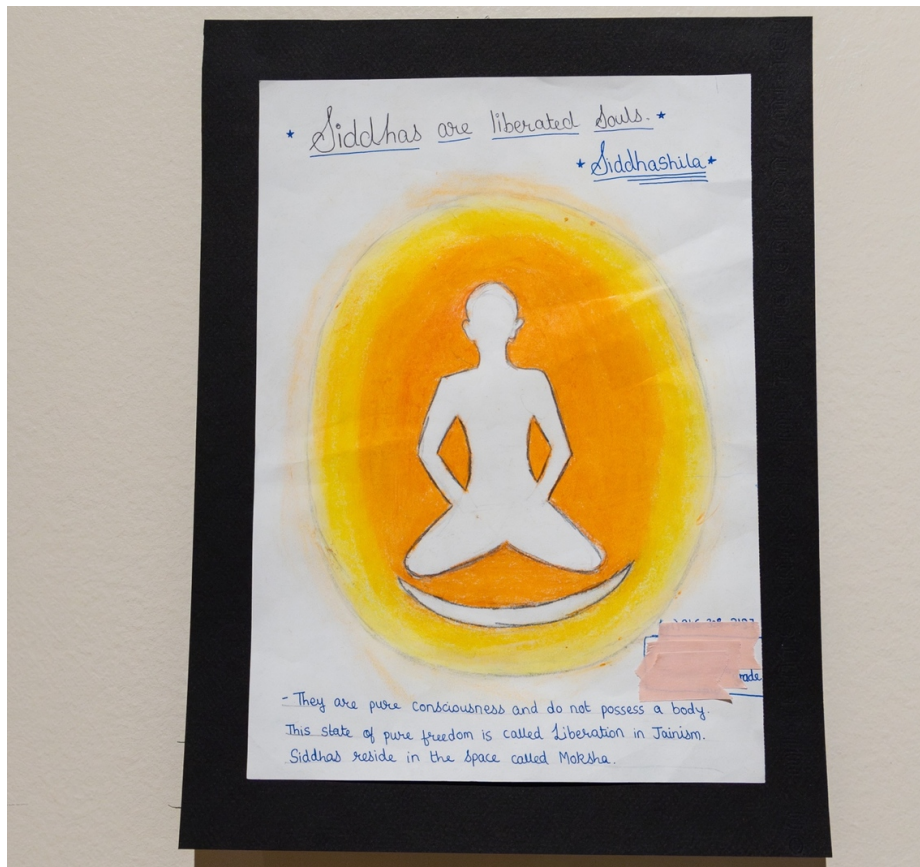 * Siddhas are liberated Souls. *
* Siddhashila *
rade
- They are pure consciousness and do not possess a body.
This state of pure freedom is called Liberation in Jainism.
Siddhas reside in the space called Moksha.